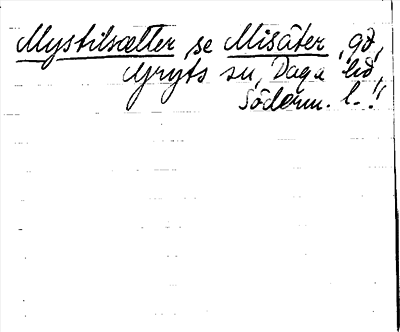 Mystilsætter se Misäter, gd,
Gryts sn, Daga hd,
Söderm. l. !!